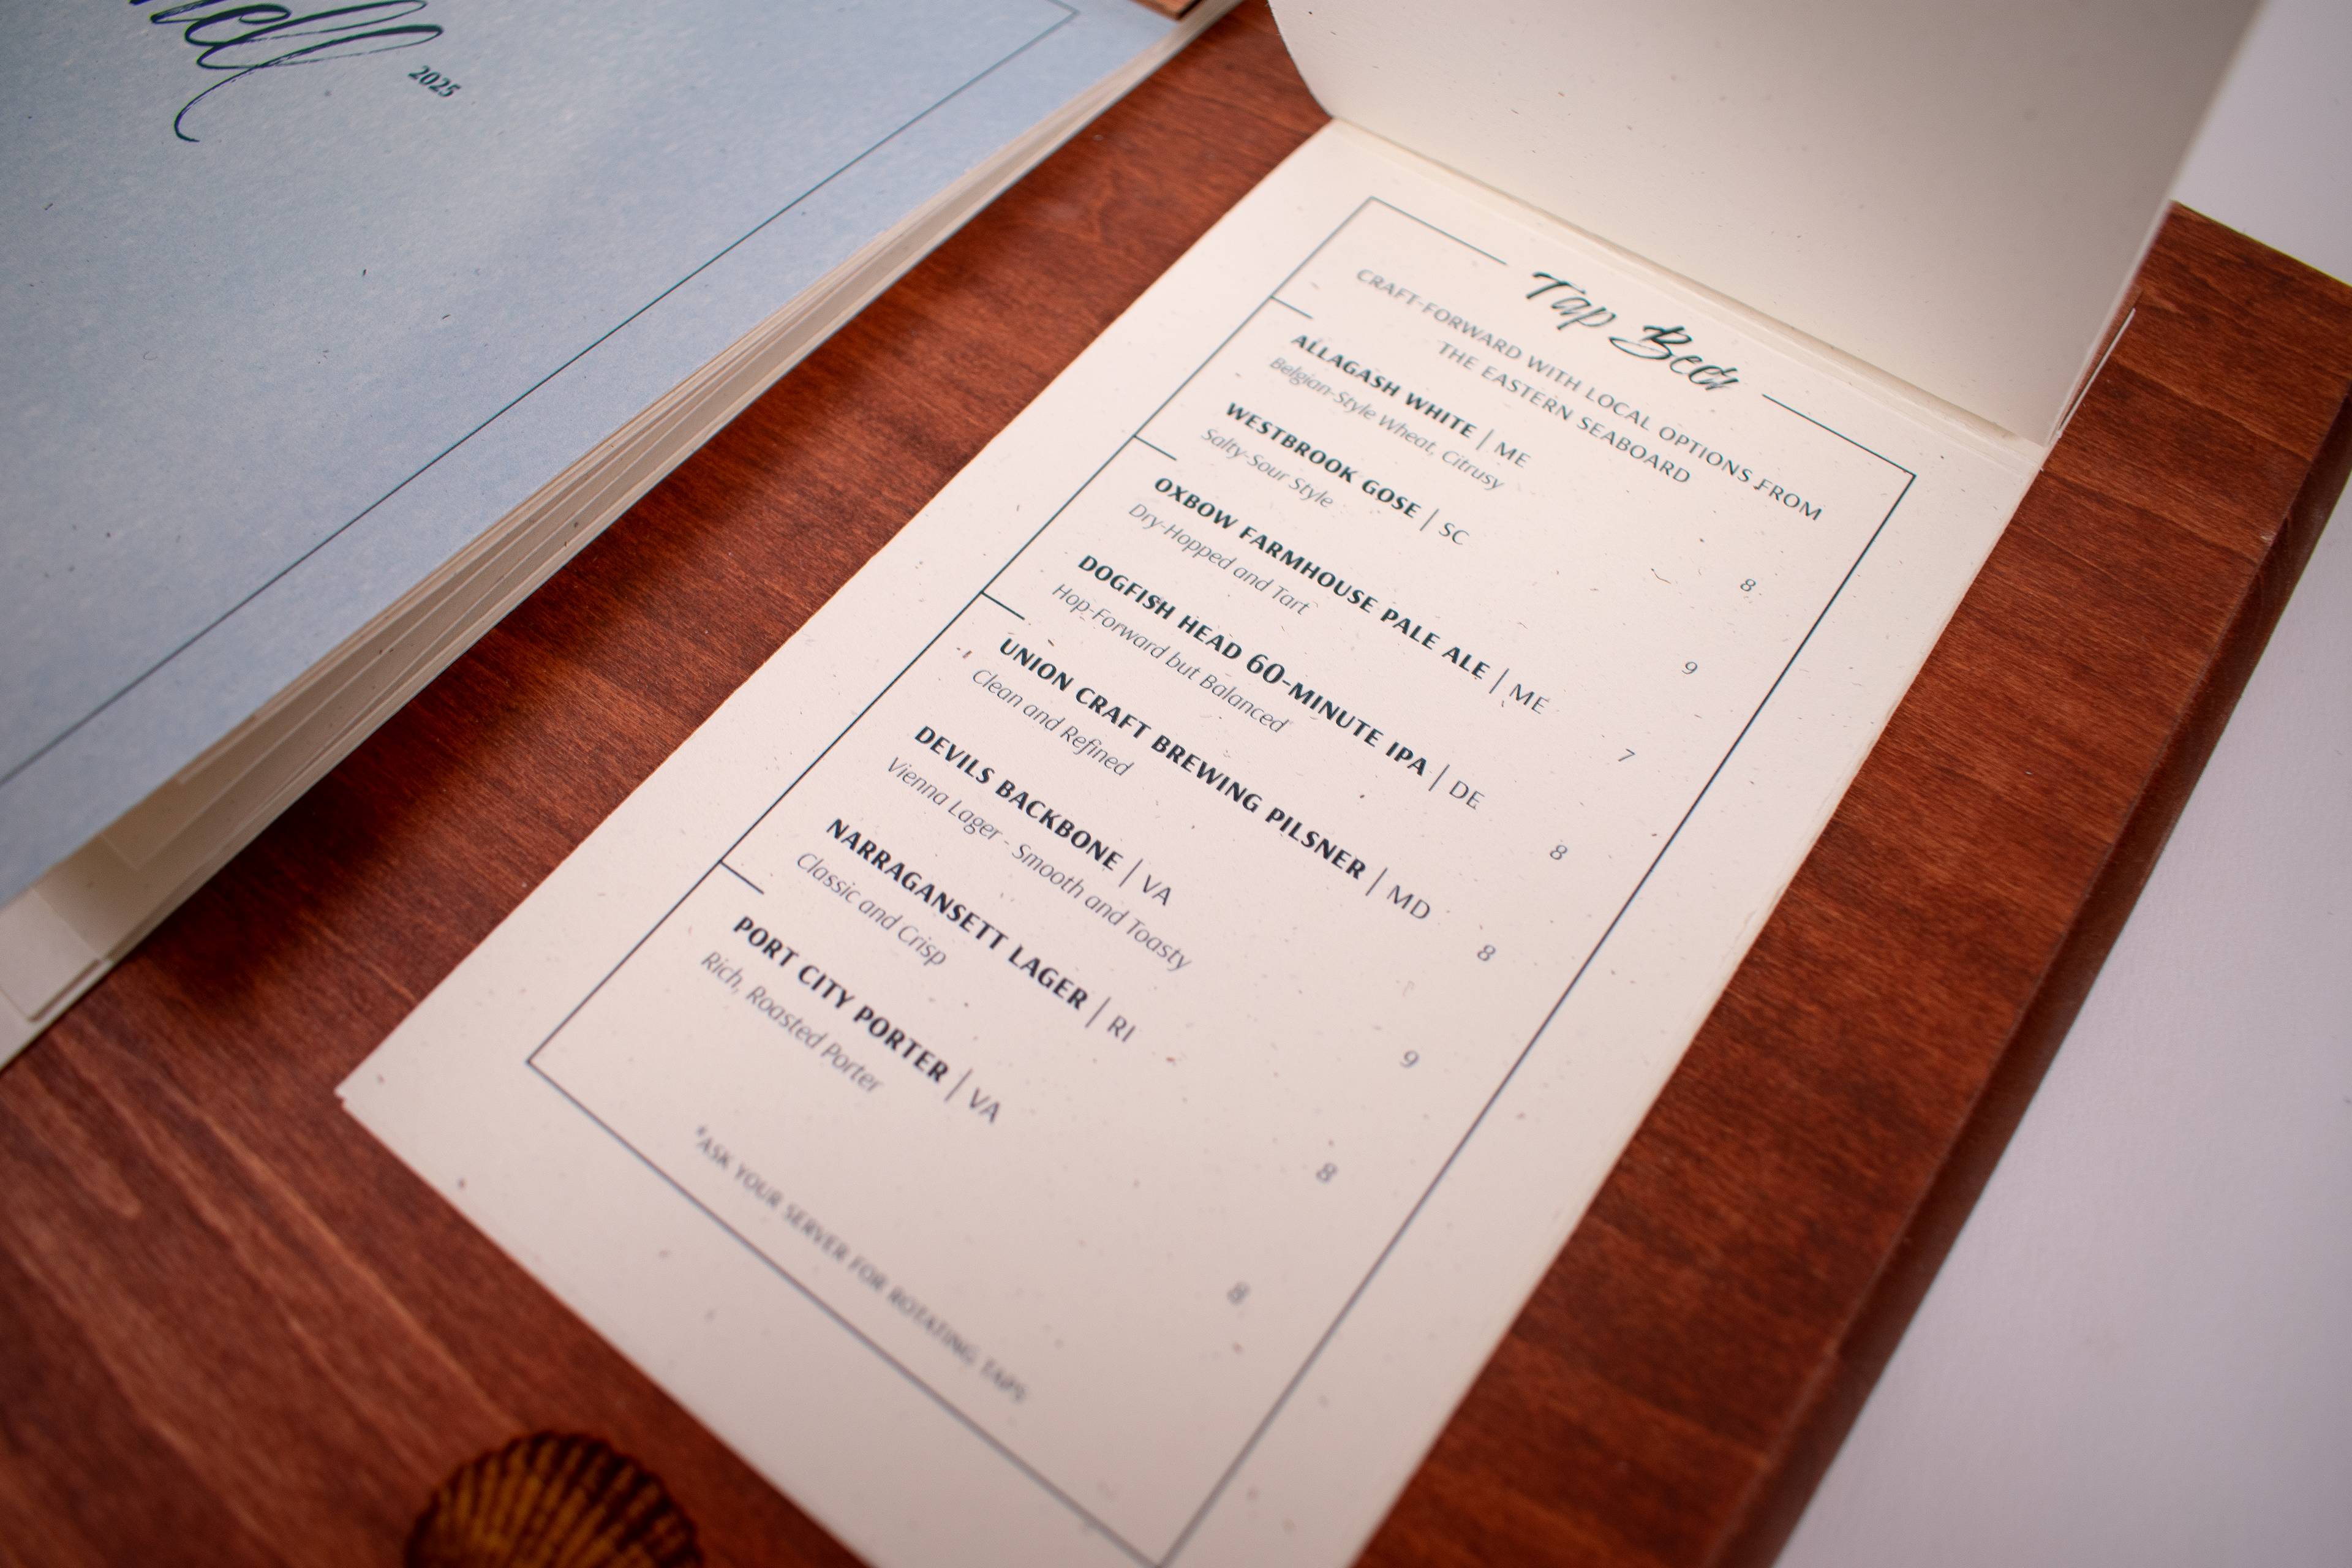 2025
Tap Beer
CRAFT-FORWARD WITH LOCAL OPTIONS FROM
THE EASTERN SEABOARD
ALLAGASH WHITE | ME 8
Belgian-Style Wheat, Citrusy
WESTBROOK GOSE | SC 9
Salty-Sour Style
OXBOW FARMHOUSE PALE ALE | ME 7
Dry-Hopped and Tart
DOGFISH HEAD 60-MINUTE IPA | DE 8
Hop-Forward but Balanced
UNION CRAFT BREWING PILSNER | MD 8
Clean and Refined
DEVILS BACKBONE | VA 9
Vienna Lager - Smooth and Toasty
NARRAGANSETT LAGER | RI 8
Classic and Crisp
PORT CITY PORTER | VA 8
Rich, Roasted Porter
*ASK YOUR SERVER FOR ROTATING TAPS